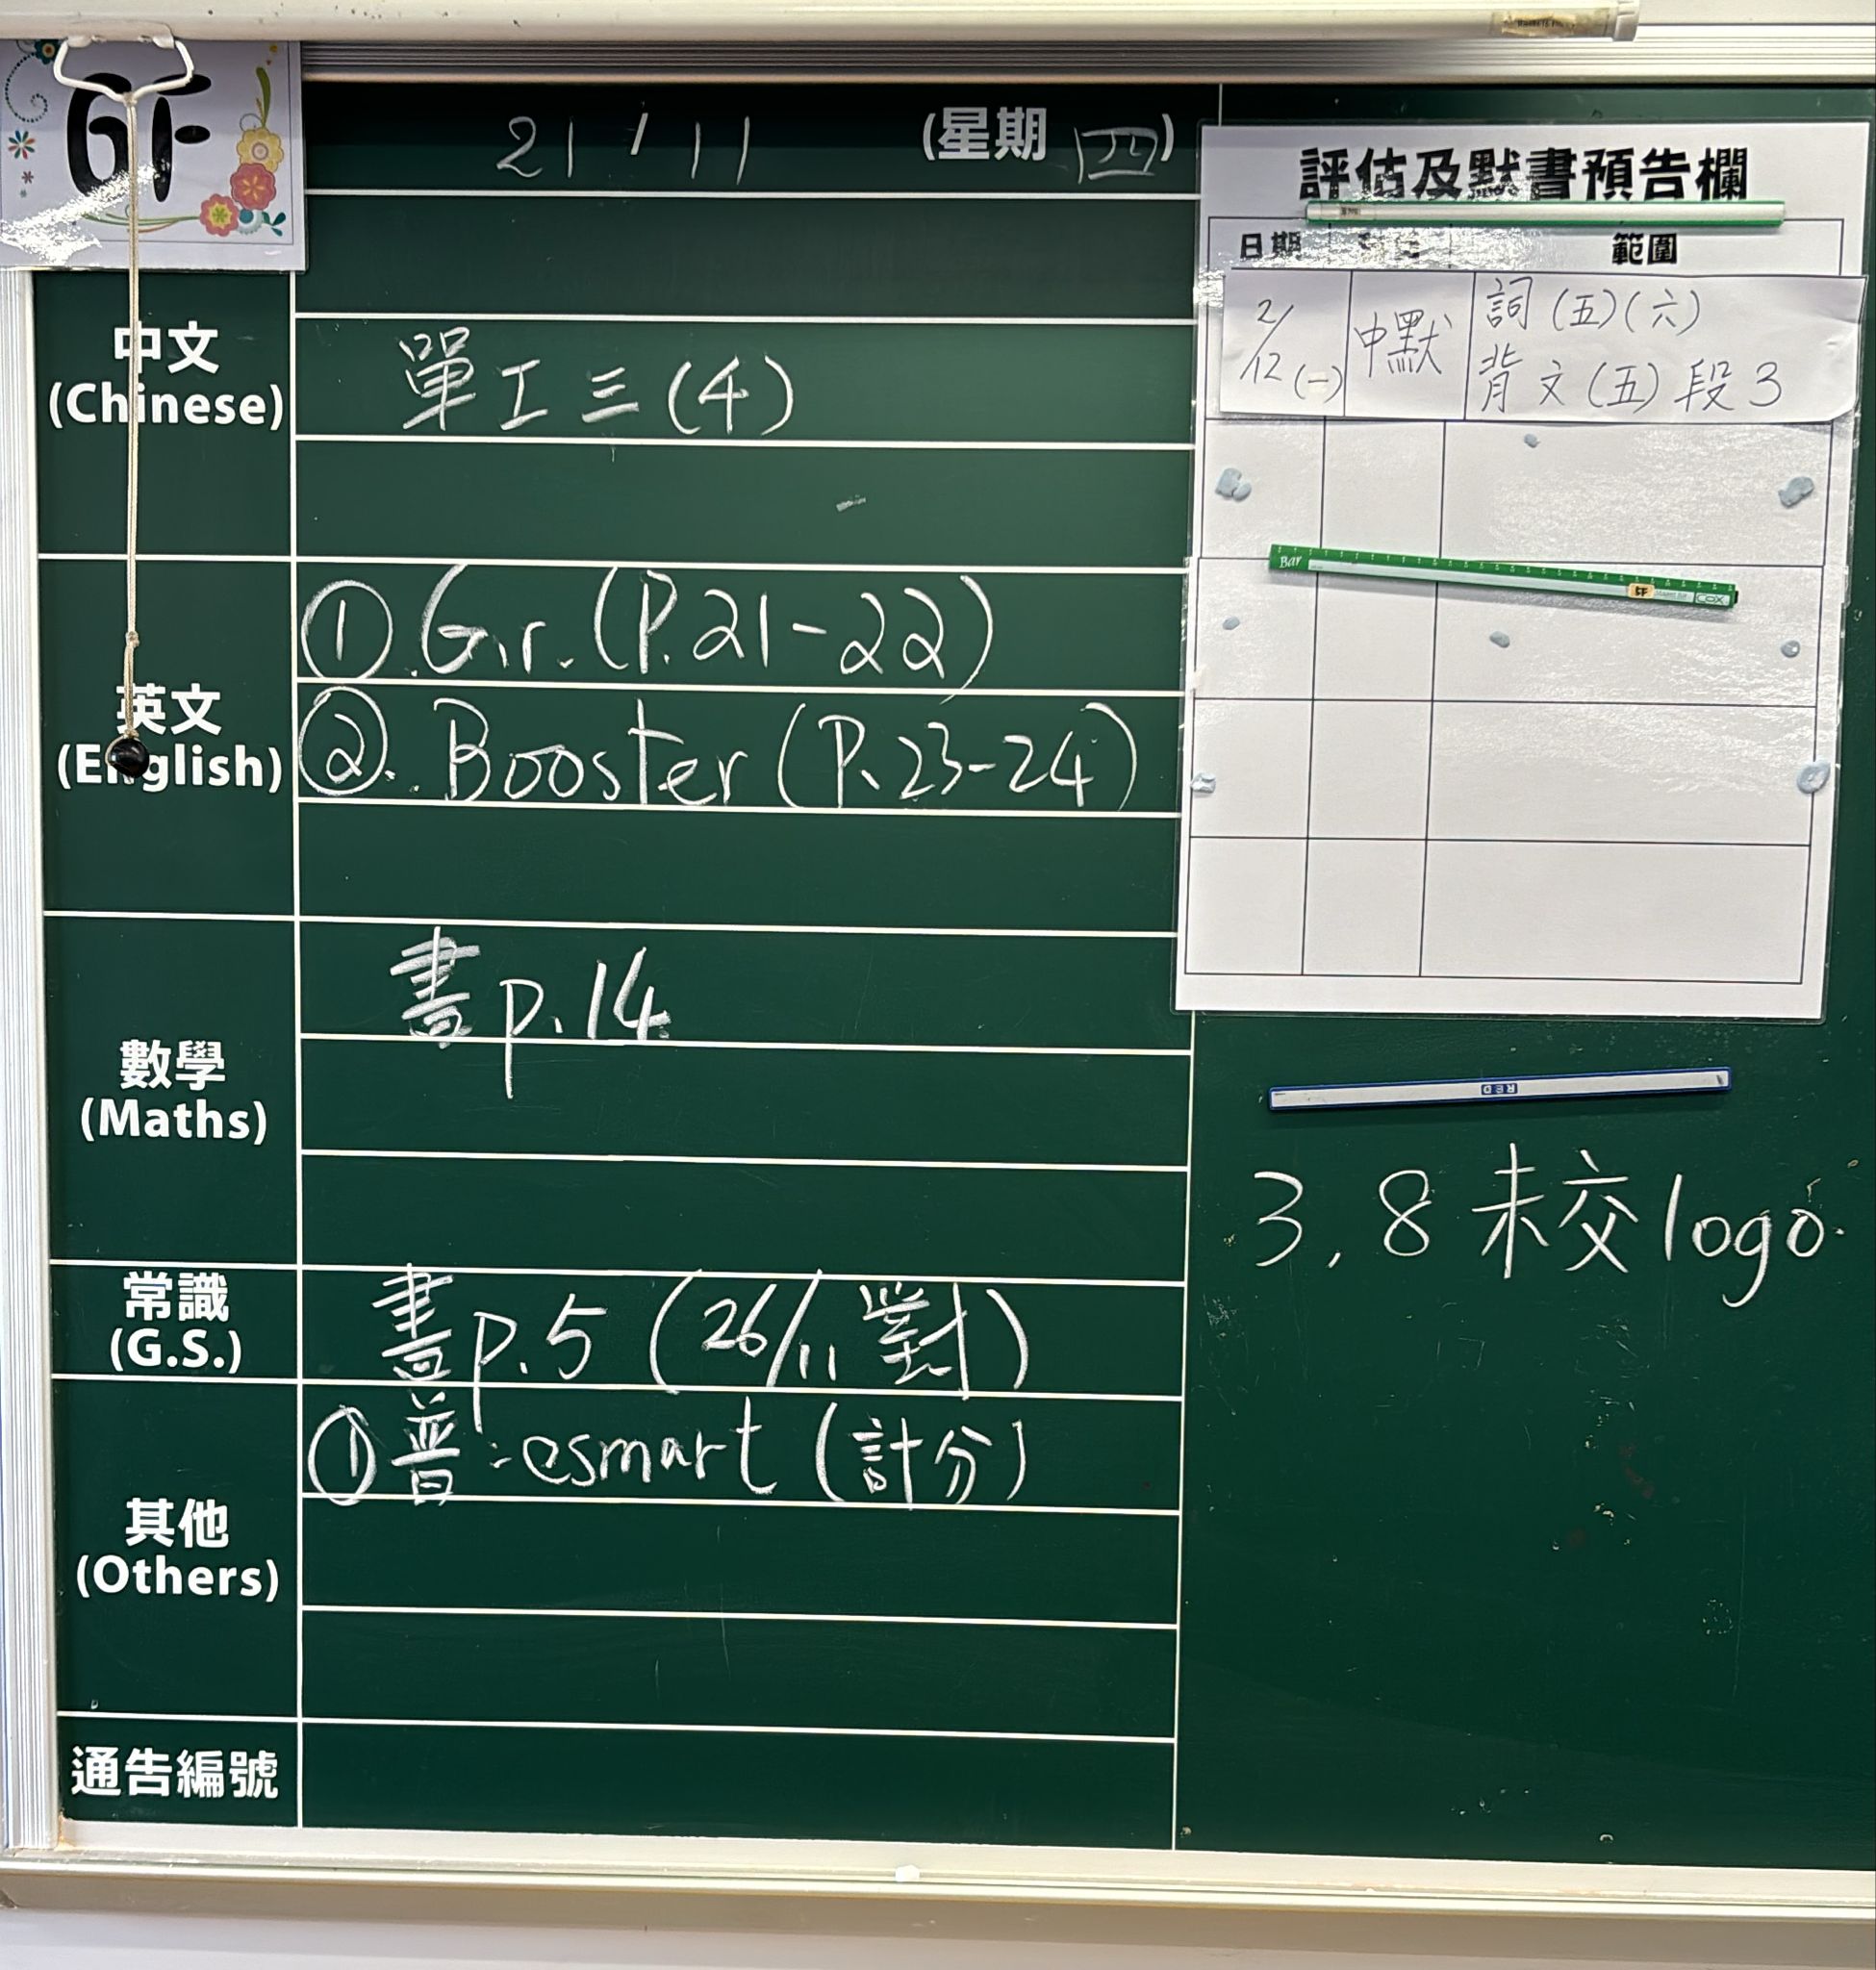 6F
21/11 (星期四)
中文
(Chinese)
單工三(4)
英文
(English)
①.Gr.(P.21-22)
②.Booster(P.23-24)
數學
(Maths)
書p.14
常識
(G.S.)
書p.5(26/11對)
其他
(Others)
①普:esmart(計分)
通告編號
評估及默書預告欄
日期 範圍
2/12(一) 中默 詞(五)(六)
背文(五)段3
Bar 5F COX
RED
3,8未交logo.